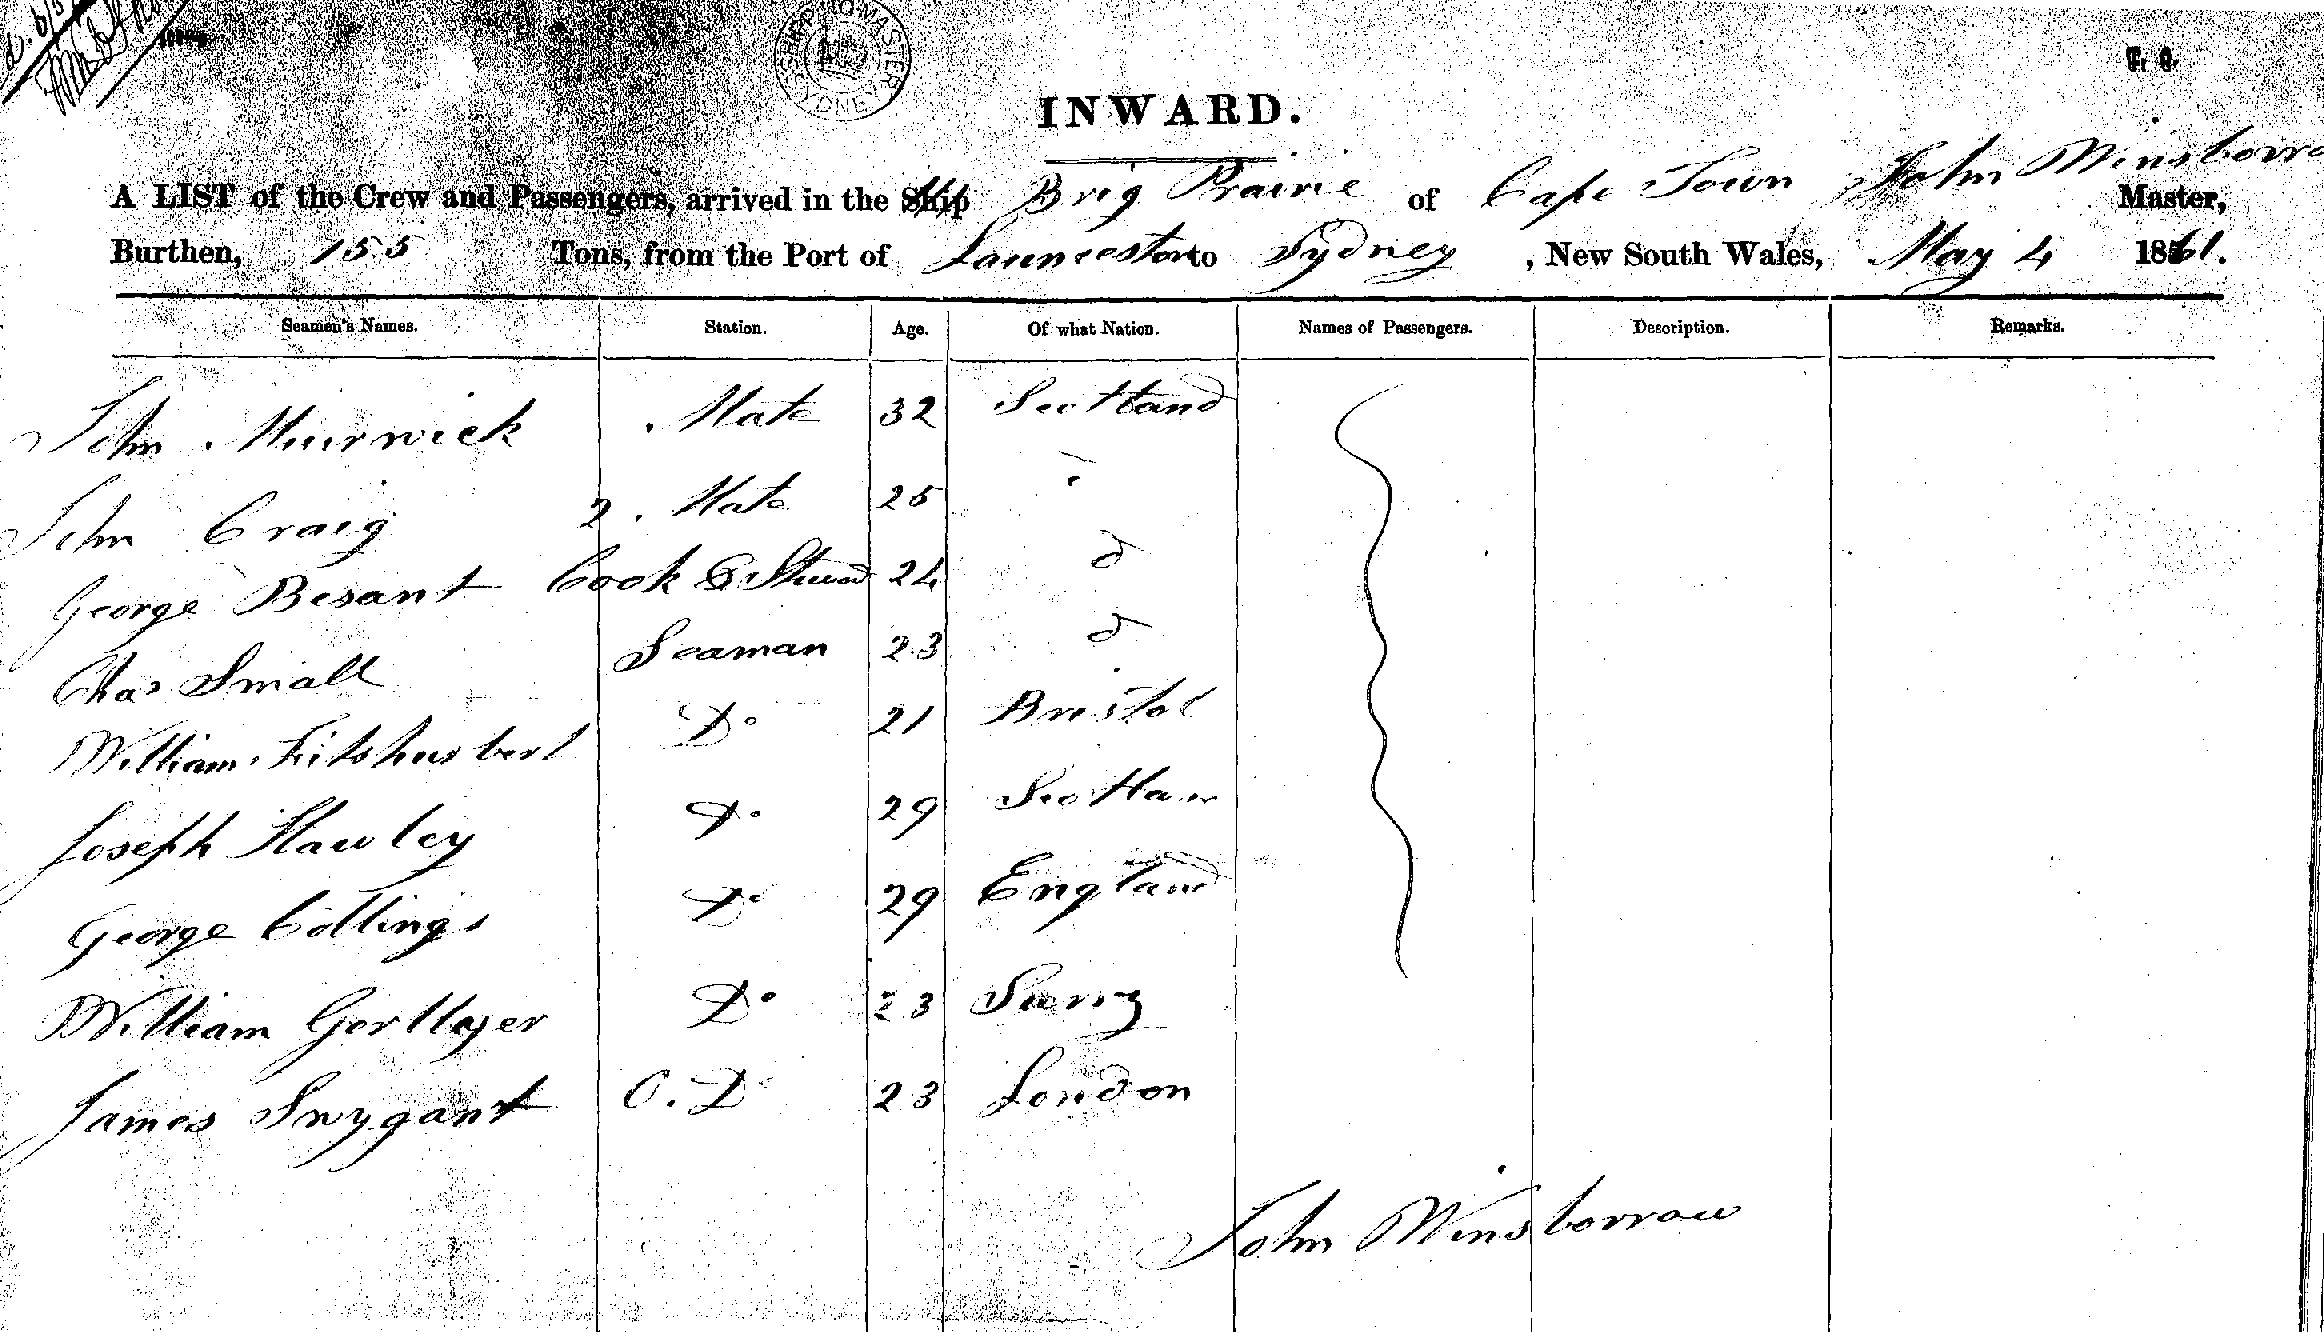 SHIPPING MASTER SYDNEY
INWARD.
A LIST of the Crew and Passengers, arrived in the Ship Brig Prairie of Cape Town John Winsborrow Master,
Burthen, 155 Tons, from the Port of Launceston to Sydney, New South Wales, May 4 1861.
Seamen's Names. Station. Age. Of what Nation. Names of Passengers. Description. Remarks.
John Muirwick Mate 32 Scotland
John Craig 2. Mate 25 "
George Besant Cook & Steward 24 d
Chas Small Seaman 23 d
William Fitshusbert Do 21 Bristol
Joseph Hawley Do 29 Scotland
George Collings Do 29 England
William Gorllyer Do 23 Surry
James Snygant O. Do 23 London
John Winsborrow